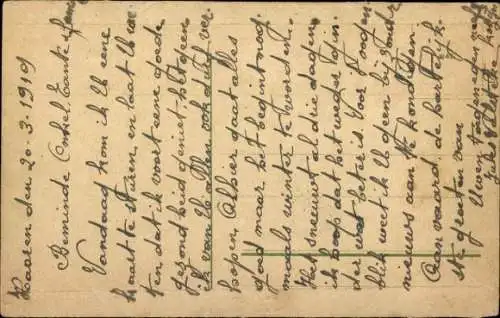 Haaren den 20-3-1919
Beminde Onkel Tante
Vandaag kom ik U eene
kaart te sturen en laat U we
ten dat ik voort eene goede
gezondheid geniet hetgeen
ik van U allen ook durf ver
hopen. Alhier gaat alles
goed maar het begint nog
maals winter te worden.
Het sneeuwt al drie dagen
ik hoop dat het weder gin
der wat beter is. Voor t oogen
blik weet ik U geen bijzonder
nieuws aan te kondigen.
Aanvaard de hartelijk
ste groeten van
Uwen toegenegen neef